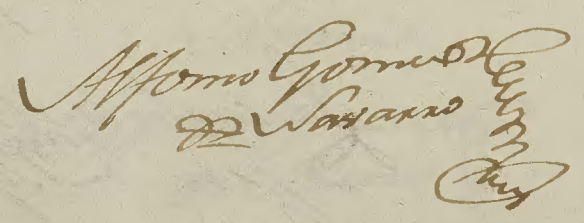 Alfonso Gomez
de Navarro